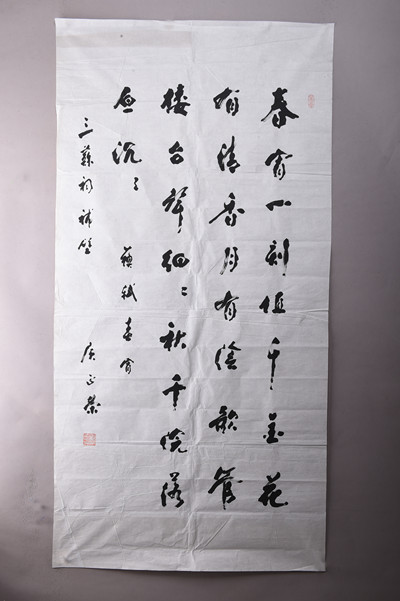 春宵一刻值千金花
有清香月有陰歌管
樓台聲細〻秋千院落
夜沉〻 蘇軾春宵
三蘇祠補壁 侯正榮